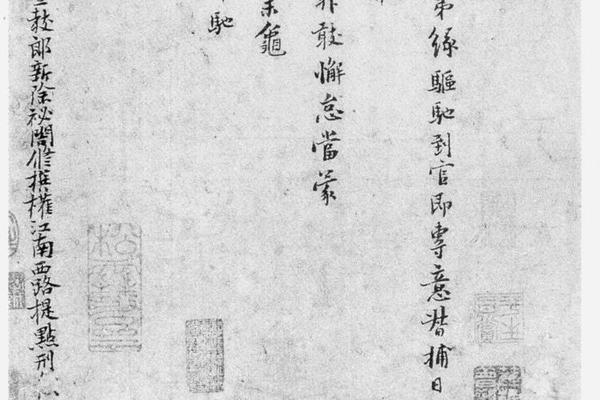 弟緣驅馳到官即專意督捕日
非敢懈怠當蒙
未龜
馳
教郎新除祕閣修撰權江南西路提點刑